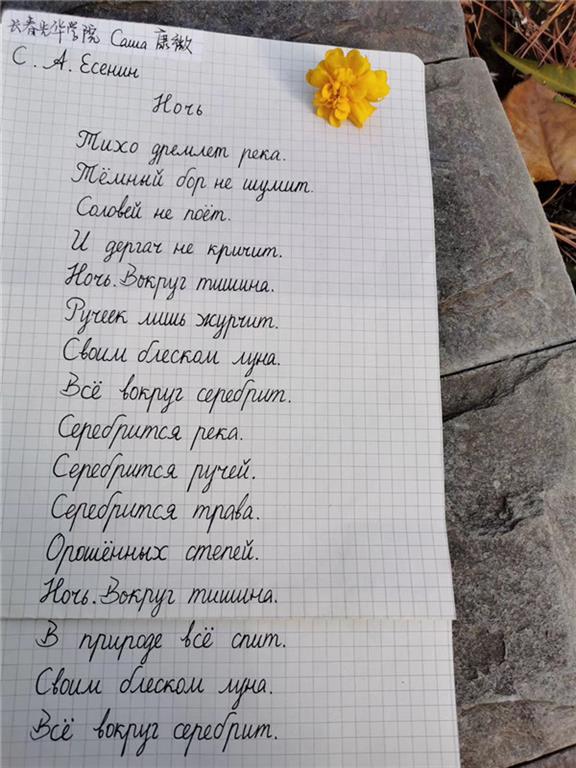 长春光华学院 Саша 康薇
С. А. Есенин
Ночь
Тихо дремлет река.
Тёмный бор не шумит.
Соловей не поёт.
И дергач не кричит.
Ночь. Вокруг тишина.
Ручеек лишь журчит.
Своим блеском луна.
Всё вокруг серебрит.
Серебрится река.
Серебрится ручей.
Серебрится трава.
Орошённых степей.
Ночь. Вокруг тишина.
В природе всё спит.
Своим блеском луна.
Всё вокруг серебрит.